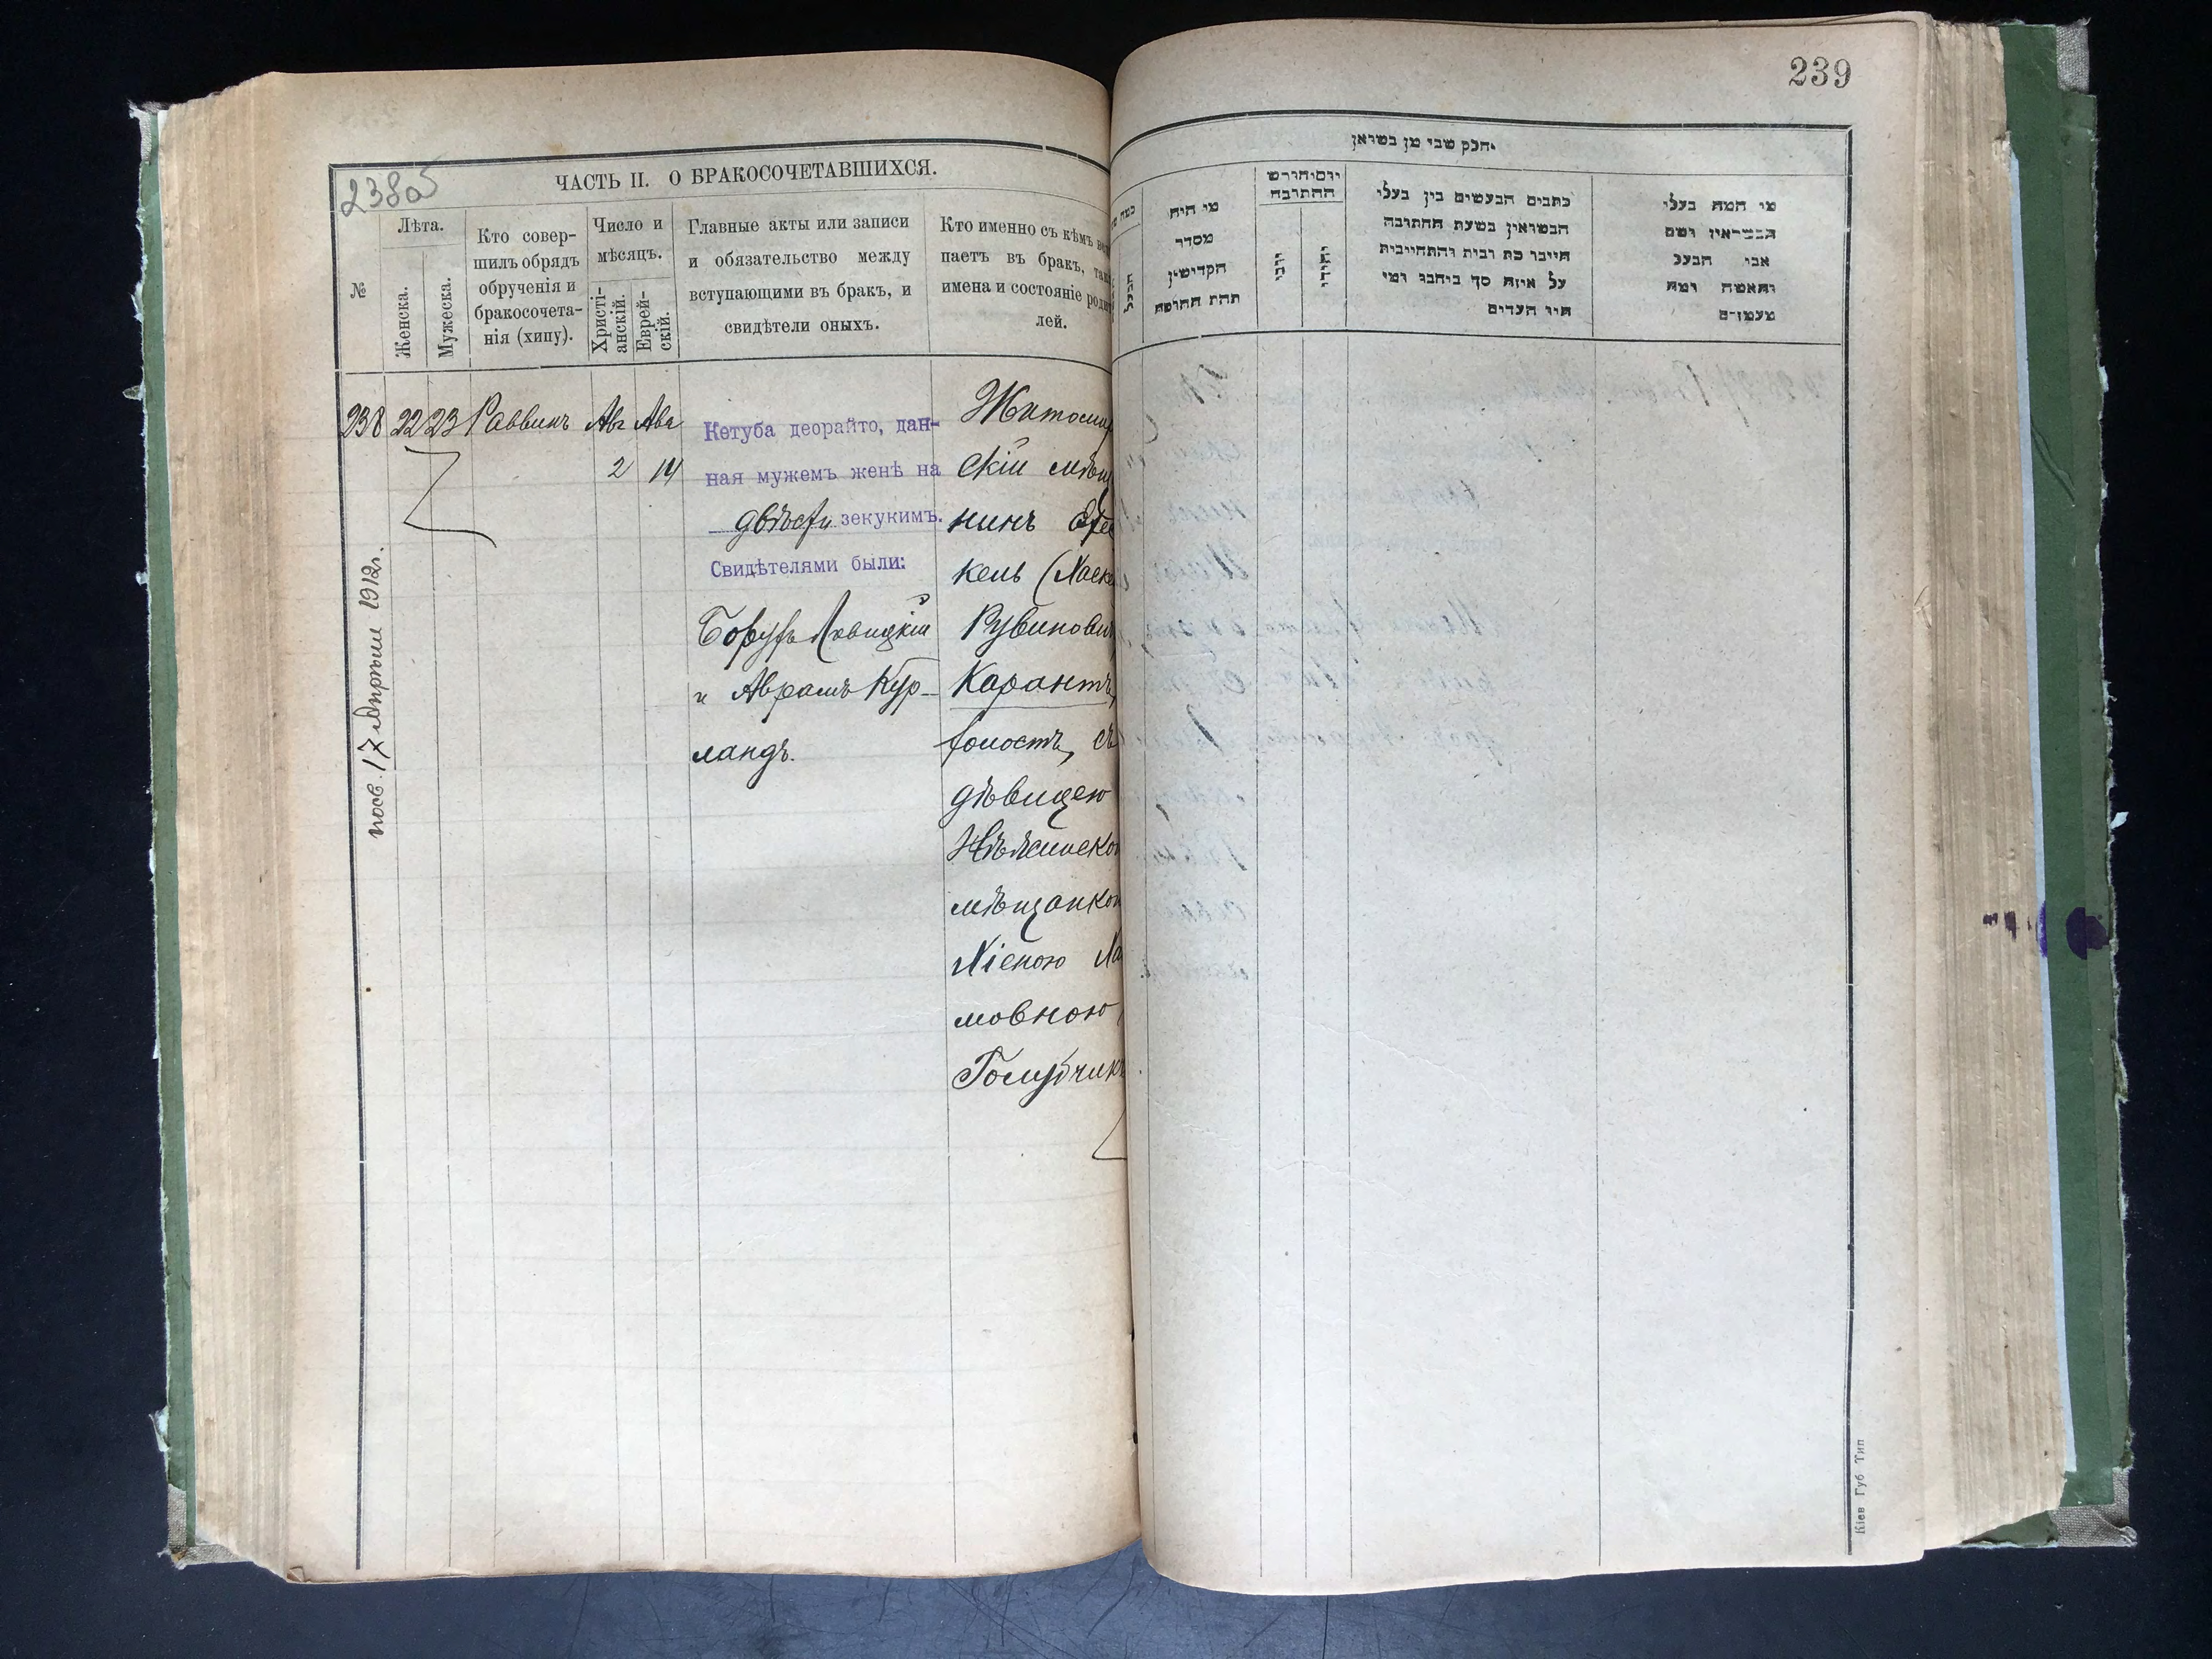 239
238об
ЧАСТЬ II. О БРАКОСОЧЕТАВШИХСЯ.
№
Лѣта.
Женска.
Мужеска.
Кто совер-
шилъ обрядъ
обрученія и
бракосочета-
нія (хипу).
Число и
мѣсяцъ.
Христі-
анскій.
Еврей-
скій.
Главные акты или записи
и обязательство между
вступающими въ брак, и
свидѣтели оныхъ.
Кто именно съ кѣмъ
паетъ въ бракъ,
имена и состояніе
лей.
238 22 23 Раввинъ Авг Ава
2 14
Кетуба деорайто, дан-
ная мужемъ женѣ на
двѣсти зекукимъ.
Свидѣтелями были:
Борухъ Лавицкій
и Аврамъ Кур-
ландъ.
Житомир
скій мѣщ
нинъ
кель (Хаске
Рувинович
Карантъ,
холостъ, съ
дѣвицею
Нѣжинской
мѣщанкой
Хіеною Ха
мовною
Голубчикъ
посв. 17 Апрѣля 1912г.
חלק שני מן נשואין
מי היה
מסדר
הקדישין
תחת החופה
יום וחודש
החתונה
יוני
יהודי
כתבים הנעשים בין בעלי
הנשואין בשעת החתונה
חייבו כת ובית והתחייבות
על איזה סך ביחבו ומי
היו העדים
מי המה בעלי
הנשואין ושם
אבי הבעל
והאשה ומה
מעמדם
Кіев Губ Тип